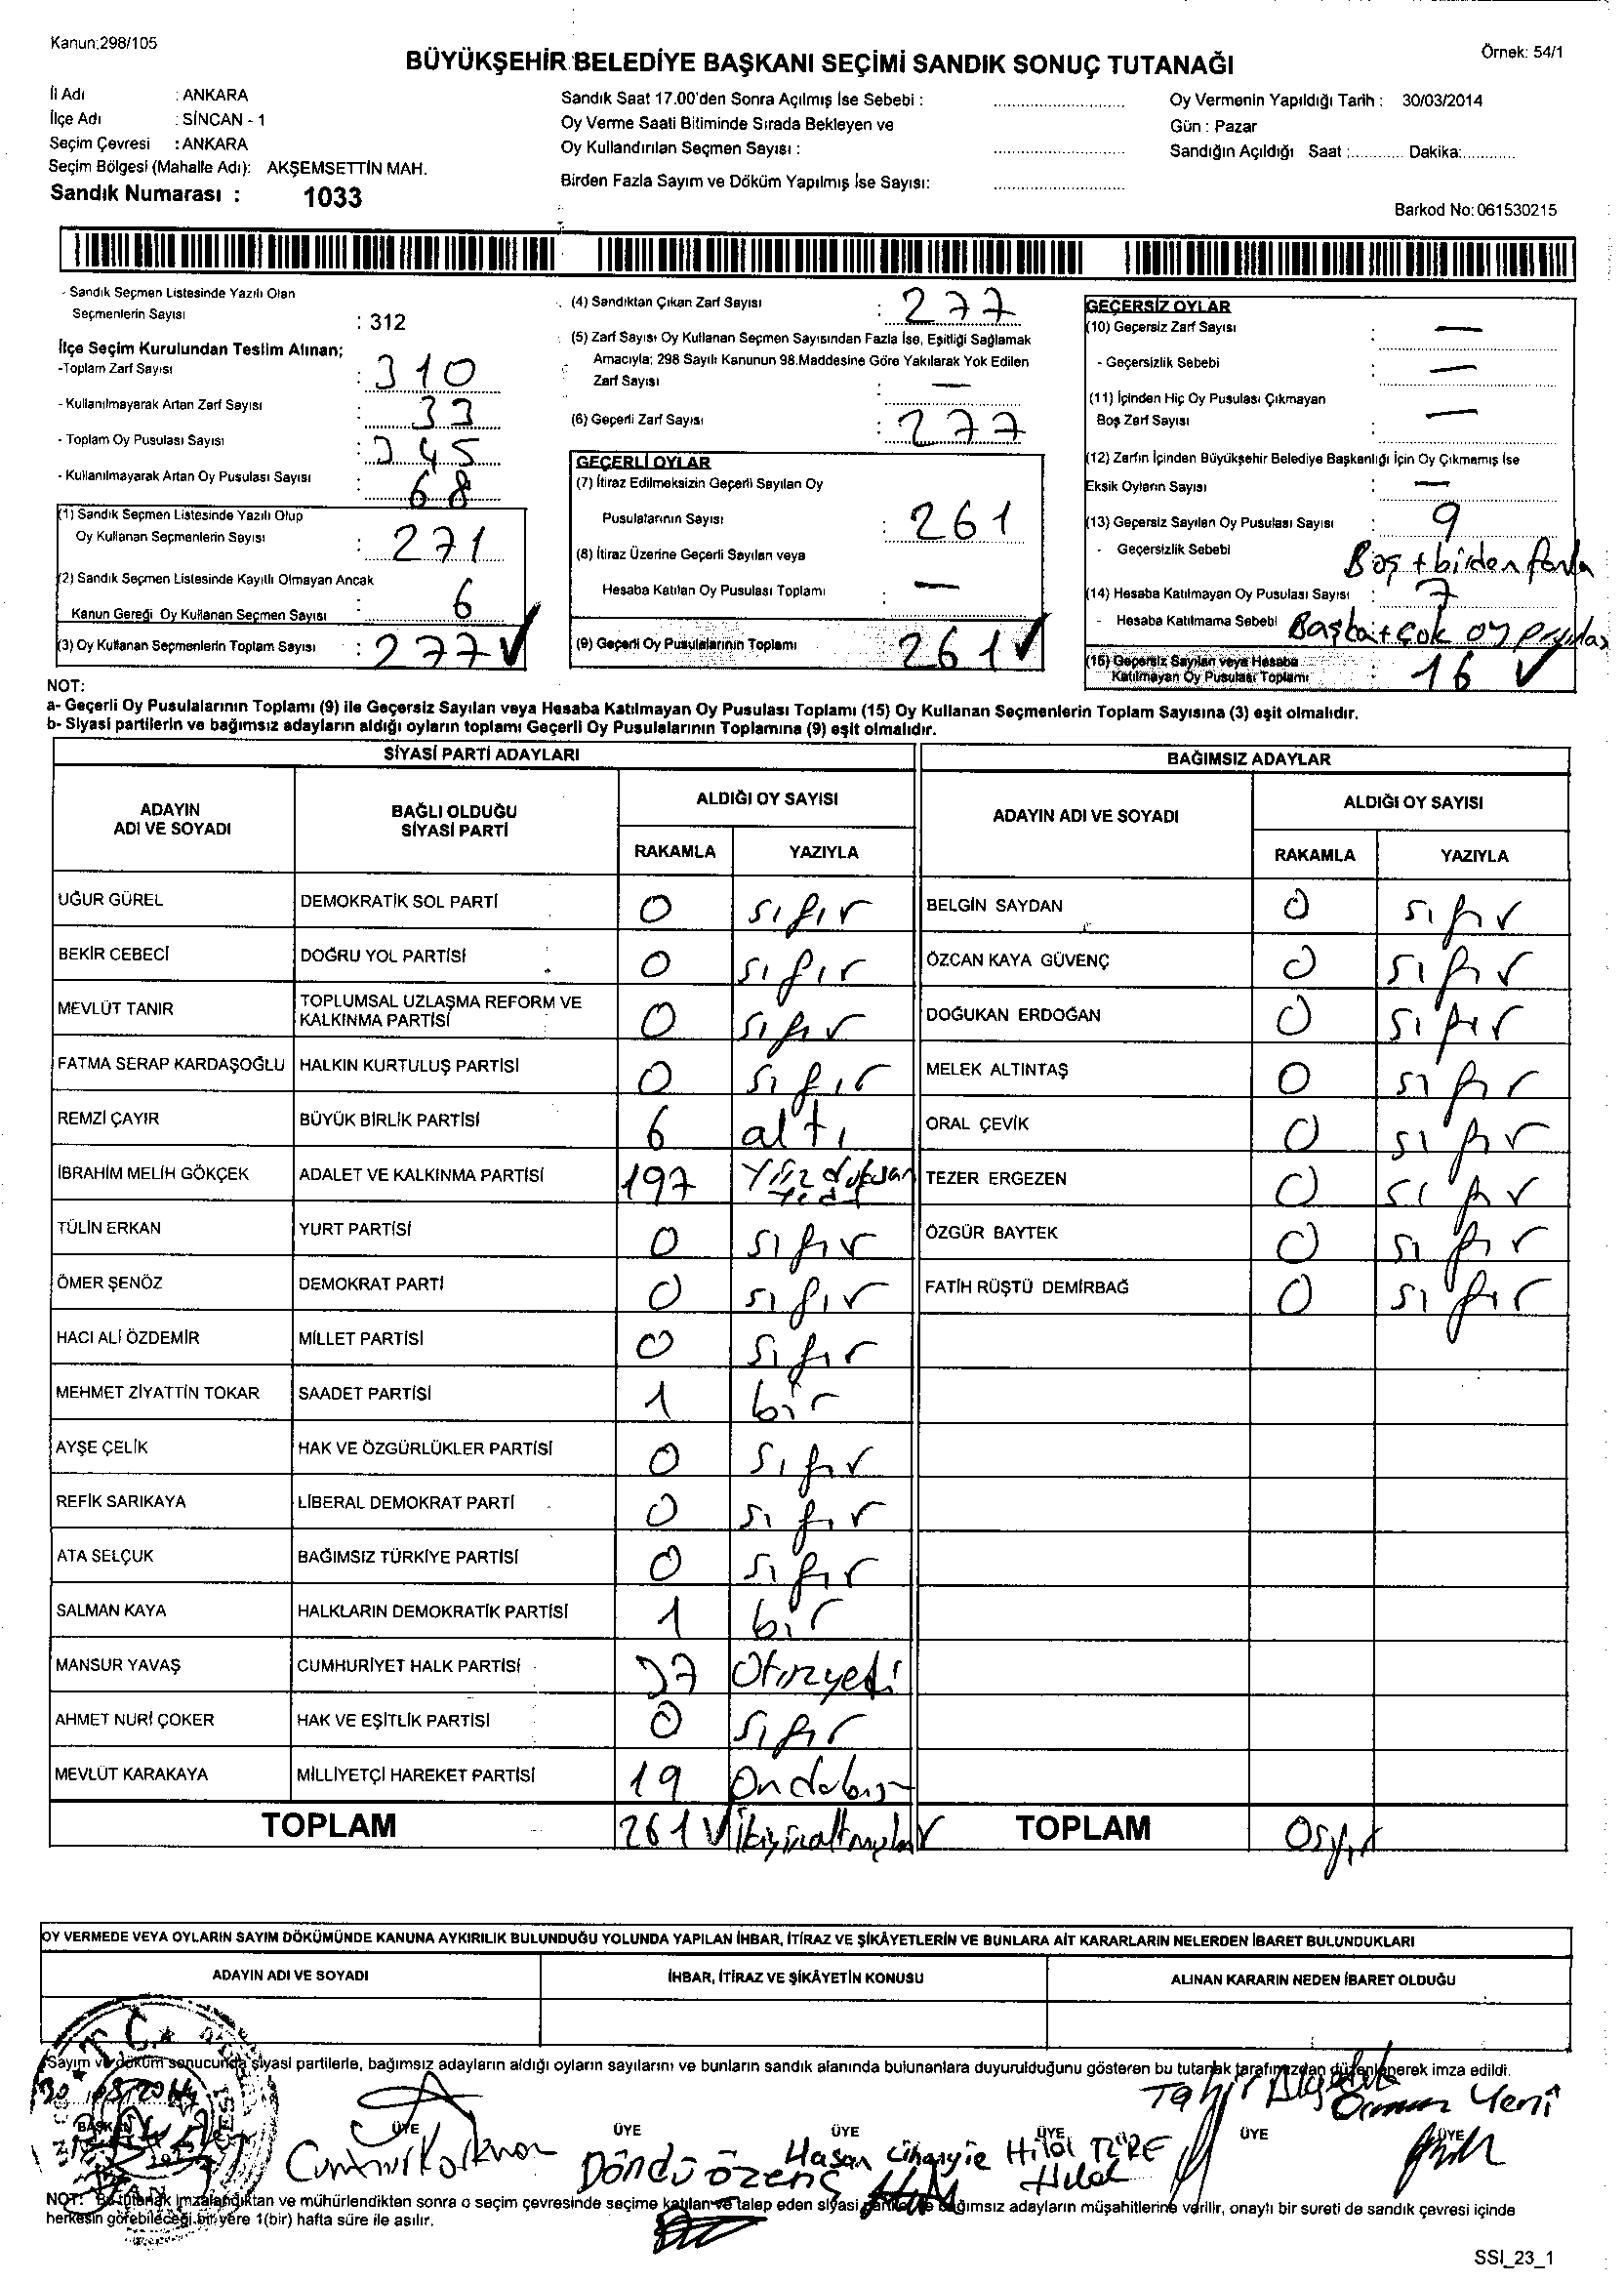 Kanun:298/105
Örnek: 54/1
BÜYÜKŞEHİR BELEDİYE BAŞKANI SEÇİMİ SANDIK SONUÇ TUTANAĞI
İl Adı : ANKARA
İlçe Adı : SİNCAN - 1
Seçim Çevresi : ANKARA
Seçim Bölgesi (Mahalle Adı): AKŞEMSETTİN MAH.
Sandık Numarası : 1033
Sandık Saat 17.00'den Sonra Açılmış İse Sebebi :
Oy Verme Saati Bitiminde Sırada Bekleyen ve
Oy Kullandırılan Seçmen Sayısı :
Birden Fazla Sayım ve Döküm Yapılmış İse Sayısı:
Oy Vermenin Yapıldığı Tarih : 30/03/2014
Gün : Pazar
Sandığın Açıldığı Saat :............ Dakika:............
Barkod No: 061530215
- Sandık Seçmen Listesinde Yazılı Olan
Seçmenlerin Sayısı : 312
İlçe Seçim Kurulundan Teslim Alınan;
-Toplam Zarf Sayısı : 310
- Kullanılmayarak Artan Zarf Sayısı : 33
- Toplam Oy Pusulası Sayısı : 345
- Kullanılmayarak Artan Oy Pusulası Sayısı : 68
(1) Sandık Seçmen Listesinde Yazılı Olup
Oy Kullanan Seçmenlerin Sayısı : 271
(2) Sandık Seçmen Listesinde Kayıtlı Olmayan Ancak
Kanun Gereği Oy Kullanan Seçmen Sayısı : 6
(3) Oy Kullanan Seçmenlerin Toplam Sayısı : 277 ✓
(4) Sandıktan Çıkan Zarf Sayısı : 277
(5) Zarf Sayısı Oy Kullanan Seçmen Sayısından Fazla İse, Eşitliği Sağlamak
Amacıyla; 298 Sayılı Kanunun 98.Maddesine Göre Yakılarak Yok Edilen
Zarf Sayısı : —
(6) Geçerli Zarf Sayısı : 277
GEÇERLİ OYLAR
(7) İtiraz Edilmeksizin Geçerli Sayılan Oy
Pusulalarının Sayısı : 261
(8) İtiraz Üzerine Geçerli Sayılan veya
Hesaba Katılan Oy Pusulası Toplamı : —
(9) Geçerli Oy Pusulalarının Toplamı : 261 ✓
GEÇERSİZ OYLAR
(10) Geçersiz Zarf Sayısı : —
- Geçersizlik Sebebi : —
(11) İçinden Hiç Oy Pusulası Çıkmayan
Boş Zarf Sayısı : —
(12) Zarfın İçinden Büyükşehir Belediye Başkanlığı İçin Oy Çıkmamış İse
Eksik Oyların Sayısı : —
(13) Geçersiz Sayılan Oy Pusulası Sayısı : 9
- Geçersizlik Sebebi Boş + birden fazla
(14) Hesaba Katılmayan Oy Pusulası Sayısı : 7
- Hesaba Katılmama Sebebi Başka + çok oy
(15) Geçersiz Sayılan veya Hesaba
Katılmayan Oy Pusulası Toplamı : 16 ✓
NOT:
a- Geçerli Oy Pusulalarının Toplamı (9) ile Geçersiz Sayılan veya Hesaba Katılmayan Oy Pusulası Toplamı (15) Oy Kullanan Seçmenlerin Toplam Sayısına (3) eşit olmalıdır.
b- Siyasi partilerin ve bağımsız adayların aldığı oyların toplamı Geçerli Oy Pusulalarının Toplamına (9) eşit olmalıdır.
SİYASİ PARTİ ADAYLARI
BAĞIMSIZ ADAYLAR
ADAYIN ADI VE SOYADI
BAĞLI OLDUĞU SİYASİ PARTİ
ALDIĞI OY SAYISI
RAKAMLA YAZIYLA
ADAYIN ADI VE SOYADI
ALDIĞI OY SAYISI
RAKAMLA YAZIYLA
UĞUR GÜREL DEMOKRATİK SOL PARTİ 0 sıfır BELGİN SAYDAN 0 sıfır
BEKİR CEBECİ DOĞRU YOL PARTİSİ 0 sıfır ÖZCAN KAYA GÜVENÇ 0 sıfır
MEVLÜT TANIR TOPLUMSAL UZLAŞMA REFORM VE KALKINMA PARTİSİ 0 sıfır DOĞUKAN ERDOĞAN 0 sıfır
FATMA SERAP KARDAŞOĞLU HALKIN KURTULUŞ PARTİSİ 0 sıfır MELEK ALTINTAŞ 0 sıfır
REMZİ ÇAYIR BÜYÜK BİRLİK PARTİSİ 6 altı ORAL ÇEVİK 0 sıfır
İBRAHİM MELİH GÖKÇEK ADALET VE KALKINMA PARTİSİ 197 Yüz doksan yedi TEZER ERGEZEN 0 sıfır
TÜLİN ERKAN YURT PARTİSİ 0 sıfır ÖZGÜR BAYTEK 0 sıfır
ÖMER ŞENÖZ DEMOKRAT PARTİ 0 sıfır FATİH RÜŞTÜ DEMİRBAĞ 0 sıfır
HACI ALİ ÖZDEMİR MİLLET PARTİSİ 0 sıfır
MEHMET ZİYATTİN TOKAR SAADET PARTİSİ 1 bir
AYŞE ÇELİK HAK VE ÖZGÜRLÜKLER PARTİSİ 0 sıfır
REFİK SARIKAYA LİBERAL DEMOKRAT PARTİ 0 sıfır
ATA SELÇUK BAĞIMSIZ TÜRKİYE PARTİSİ 0 sıfır
SALMAN KAYA HALKLARIN DEMOKRATİK PARTİSİ 1 bir
MANSUR YAVAŞ CUMHURİYET HALK PARTİSİ 37 Otuzyedi
AHMET NURİ ÇOKER HAK VE EŞİTLİK PARTİSİ 0 sıfır
MEVLÜT KARAKAYA MİLLİYETÇİ HAREKET PARTİSİ 19 Ondokuz
TOPLAM 261 ✓ TOPLAM 0 sıfır
OY VERMEDE VEYA OYLARIN SAYIM DÖKÜMÜNDE KANUNA AYKIRILIK BULUNDUĞU YOLUNDA YAPILAN İHBAR, İTİRAZ VE ŞİKÂYETLERİN VE BUNLARA AİT KARARLARIN NELERDEN İBARET BULUNDUKLARI
ADAYIN ADI VE SOYADI İHBAR, İTİRAZ VE ŞİKÂYETİN KONUSU ALINAN KARARIN NEDEN İBARET OLDUĞU
T.C.
Sayım ve döküm sonucunda siyasi partilerle, bağımsız adayların aldığı oyların sayılarını ve bunların sandık alanında bulunanlara duyurulduğunu gösteren bu tutanak tarafımızdan düzenlenerek imza edildi.
30 03 2014
Tahir
Osman Yeni
BAŞKAN ÜYE ÜYE ÜYE ÜYE ÜYE ÜYE
Döndü Özenç Hasan Hilal TÜRE
Hilal
NOT: Bu tutanak imzalandıktan ve mühürlendikten sonra o seçim çevresinde seçime katılan ve talep eden siyasi partiler ile bağımsız adayların müşahitlerine verilir, onaylı bir sureti de sandık çevresi içinde
herkesin görebileceği bir yere 1(bir) hafta süre ile asılır.
SSI_23_1